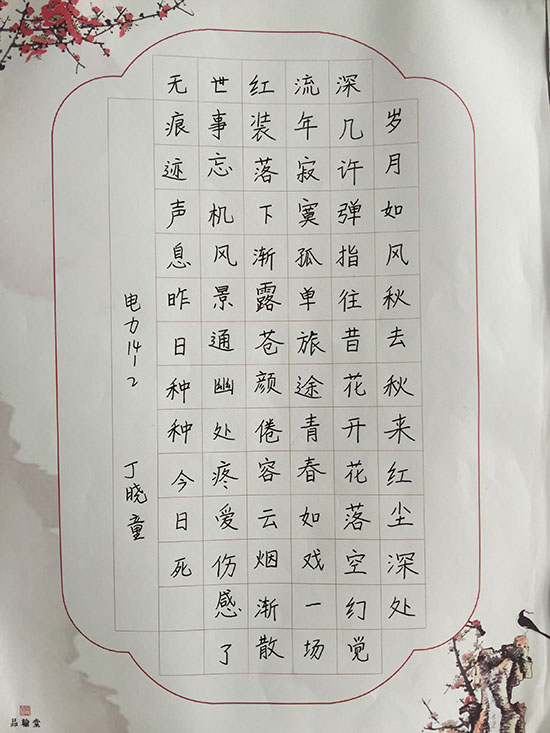 岁月如风秋去秋来红尘深处
深几许弹指往昔花开花落空幻觉
流年寂寞孤单旅途青春如戏一场
红装落下渐露苍颜倦容云烟渐散
世事忘机风景通幽处疼爱伤感了
无痕迹声息昨日种种今日死
电力14-2 丁晓童
品翰堂